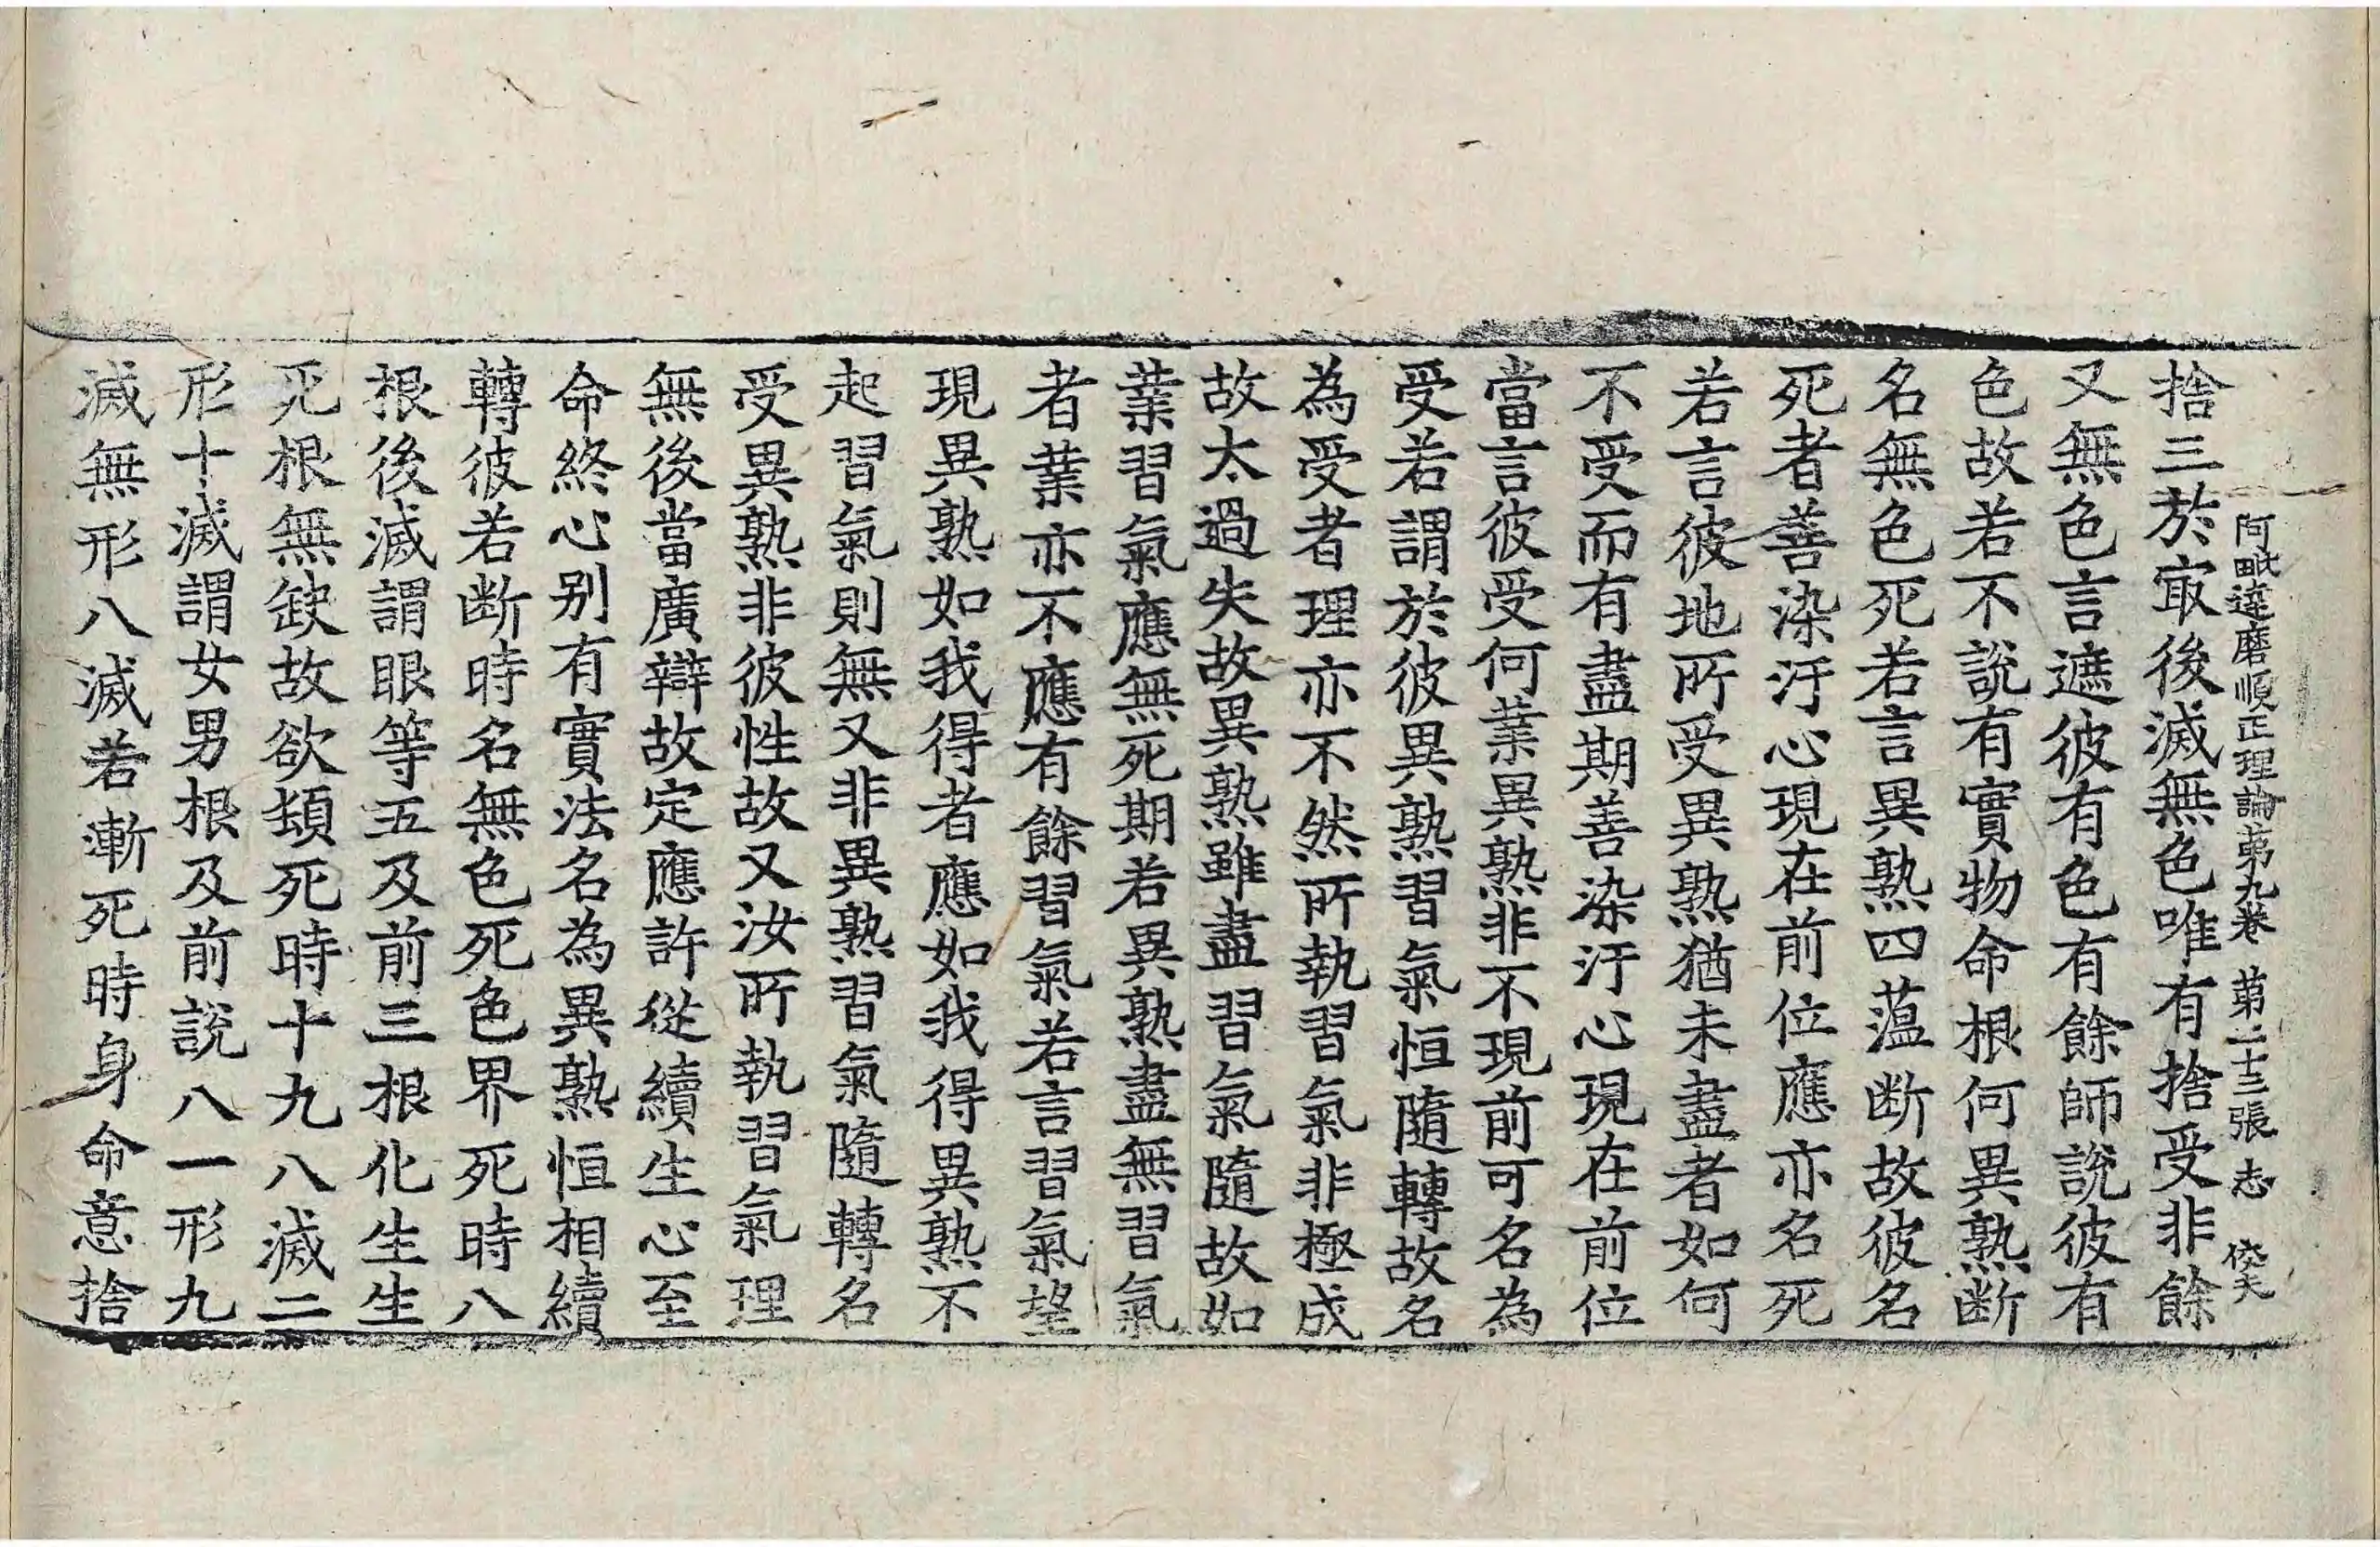 阿毗達磨順正理論第九卷 第二十三張 志 俊夫
捨三於㝡後滅無色唯有捨受非餘
又無色言遮彼有色有餘師說彼有
色故若不說有實物命根何異熟断
名無色死若言異熟四薀断故彼名
死者善染汙心現在前位應亦名死
若言彼地所受異熟猶未盡者如何
不受而有盡期善染汙心現在前位
當言彼受何業異熟非不現前可名為
受若謂於彼異熟習氣恒隨轉故名
為受者理亦不然所執習氣非極成
故太過失故異熟雖盡習氣隨故如
業習氣應無死期若異熟盡無習氣
者業亦不應有餘習氣若言習氣望
現異熟如我得者應如我得異熟不
起習氣則無又非異熟習氣隨轉名
受異熟非彼性故又汝所執習氣理
無後當廣辯故定應許從續生心至
命終心別有實法名為異熟恒相續
轉彼若断時名無色死色界死時八
根後滅謂眼等五及前三根化生生
死根無缺故欲頓死時十九八滅二
形十滅謂女男根及前說八一形九
滅無形八滅若漸死時身命意捨